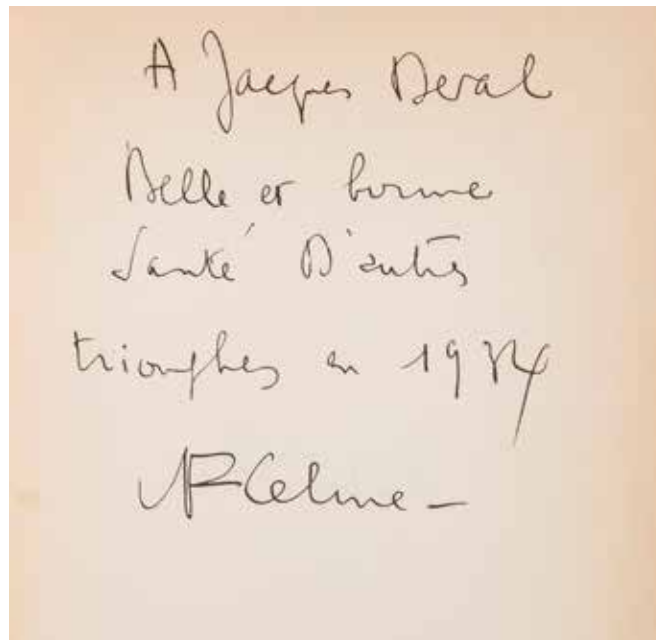 A Jacques Deval
Belle et bonne
Santé D'autres
triomphes en 1934
LF Celine –